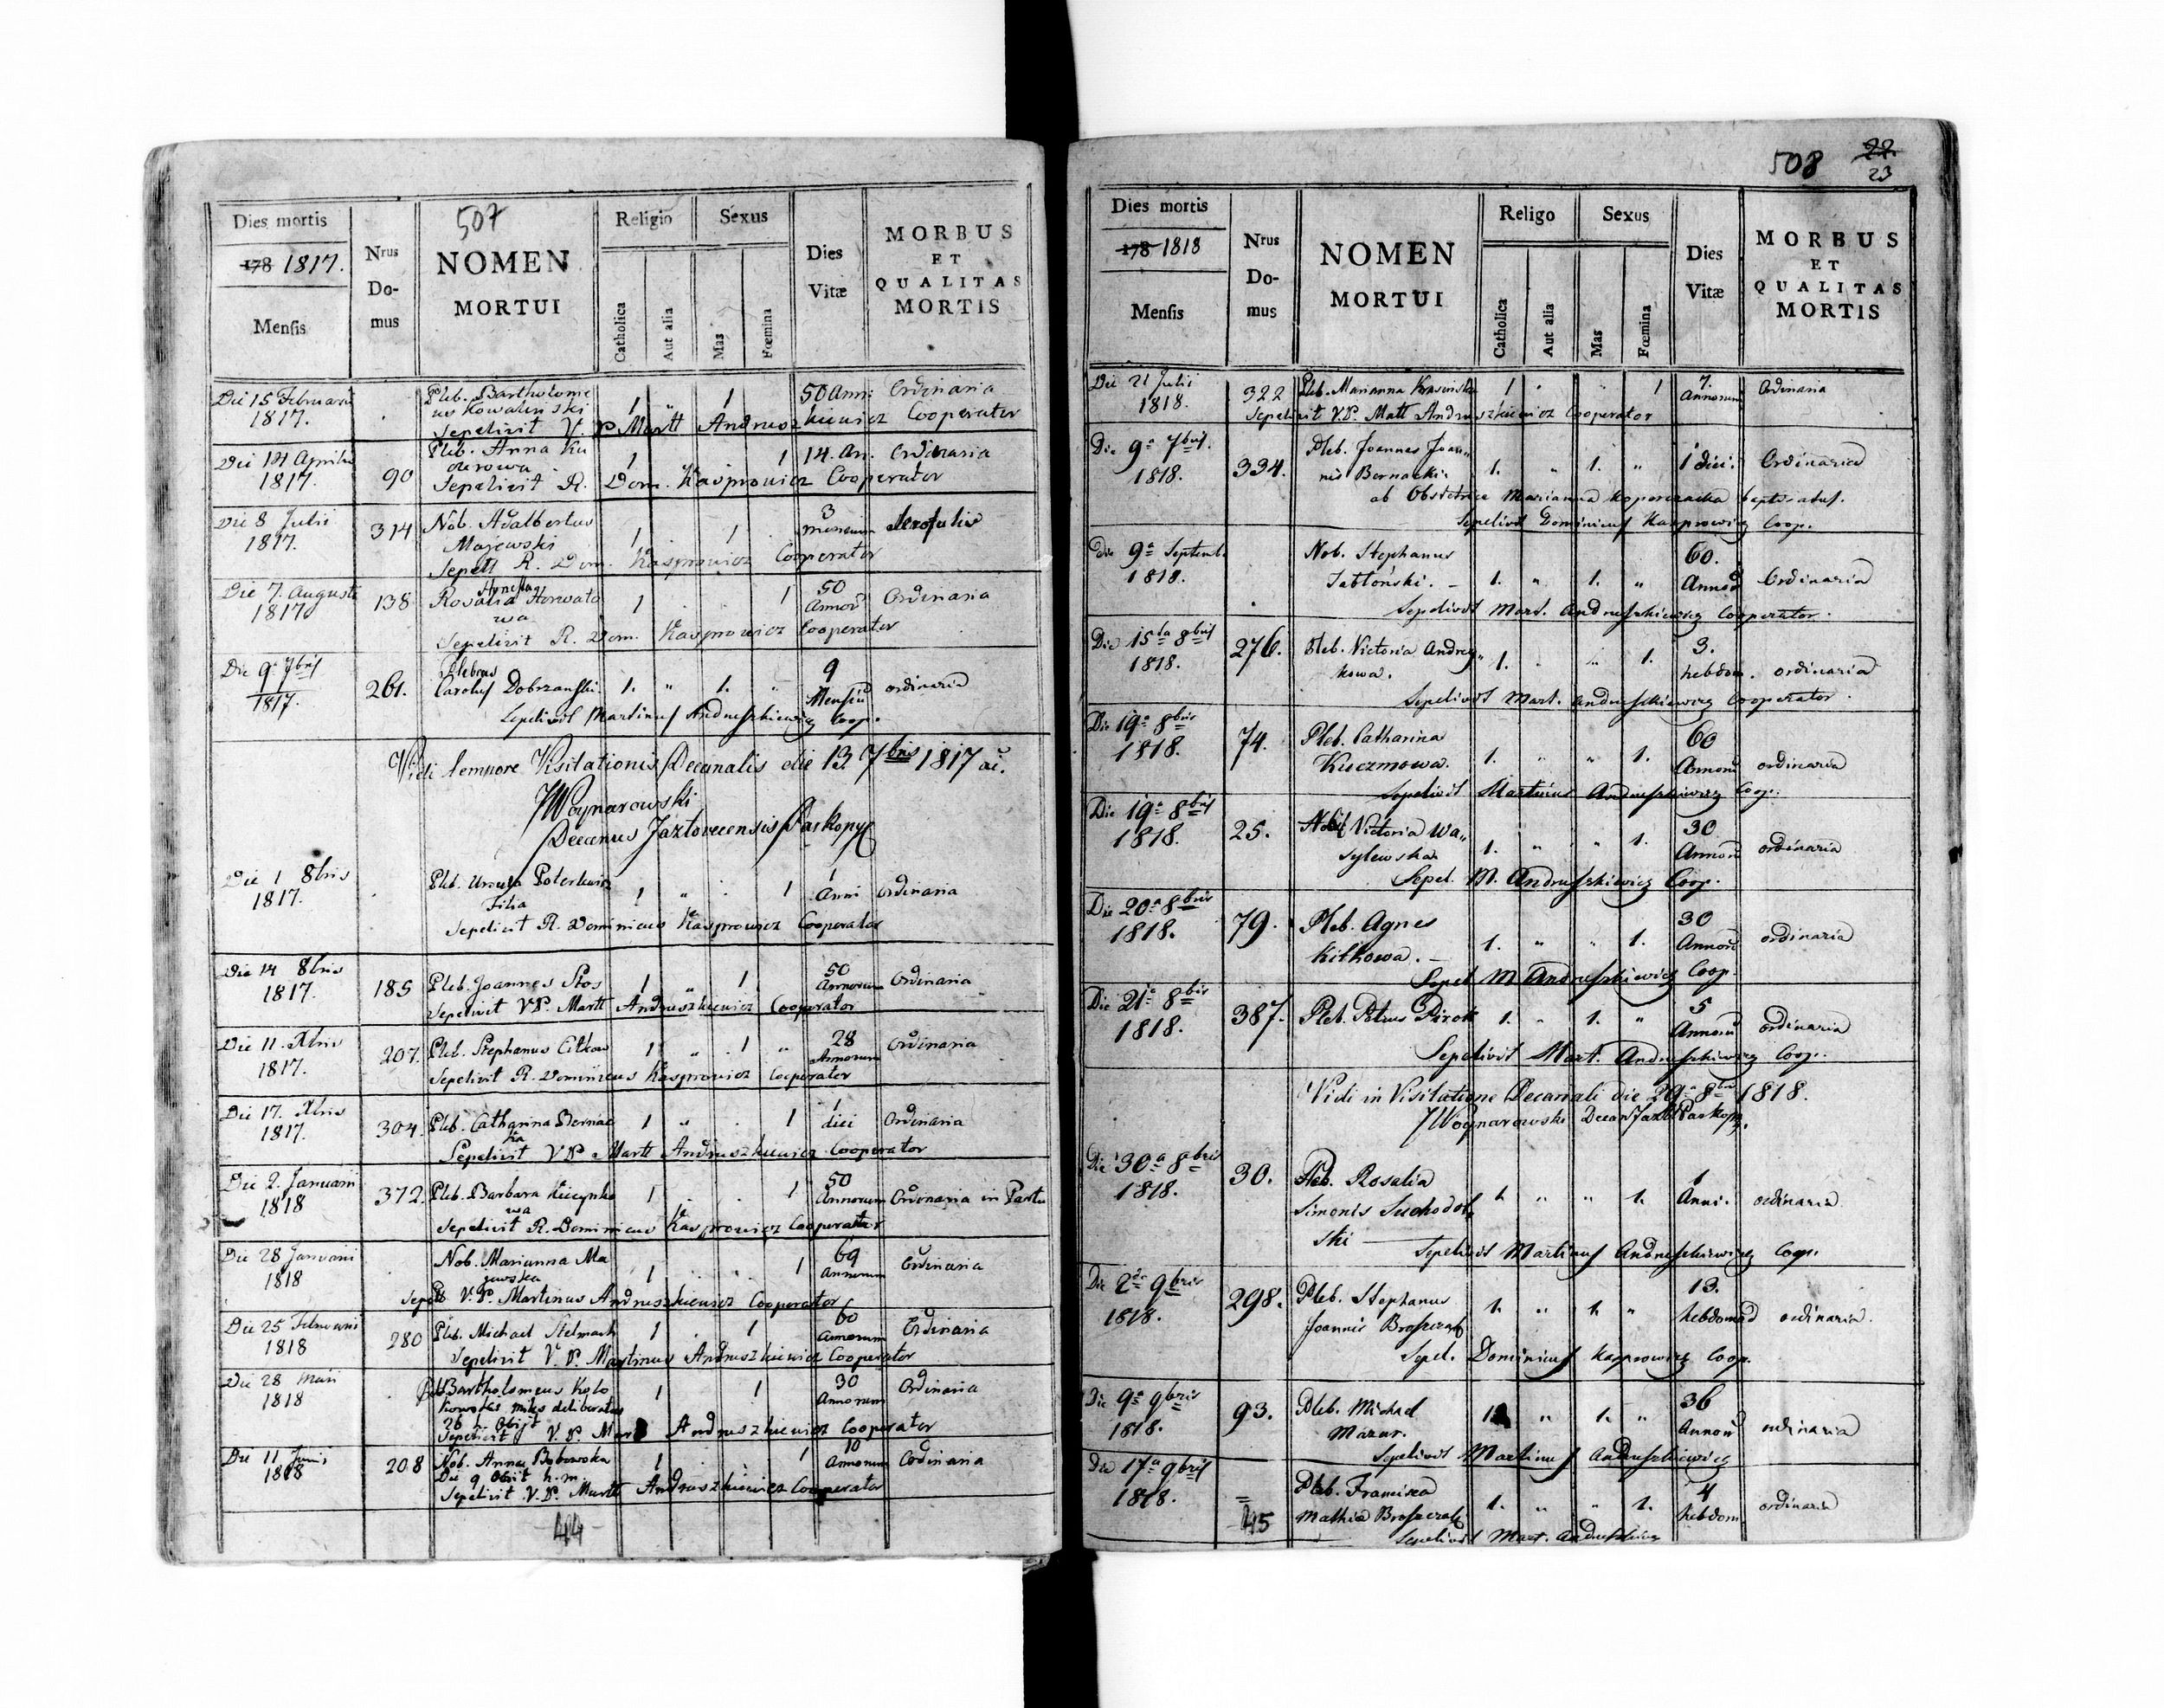 507
Dies mortis
178 1817.
Mensis
Nrus Do-mus
NOMEN
MORTUI
Religio
Catholica
Aut alia
Sexus
Mas
Fœmina
Dies
Vitæ
MORBUS
ET
QUALITAS
MORTIS
Die 15 Februarii 1817. Pleb. Bartholome 1 " 1 50 Ann: Ordinaria
us Kowalinski
Sepelivit V. P. Martt Andruszkiewicz Cooperator
Die 14 Aprilis 1817. 90 Pleb. Anna Ku 1 1 14. An. Ordinaria
Sepelivit R. Dom. Kasprowicz Cooperator
Die 8 Julii 1817. 314 Nob. Adalbertus 1 . 1 . 3 mensium
Majewski
Sepelt R. Dom. Kasprowicz Cooperator
Die 7. Augusti 1817 138 Rosalia Horwato 1 . . 1 50 Annor Ordinaria
wa
Sepelivit R. Dom. Kasprowicz Cooperator
Die 9a 7bris 1817. 261. Plebeus
Carolus Dobrzanski. 1. " 1. " 9 Mensiu ordinaria
Sepelivit Martinus Andruszkiewicz Coop.
Vidi tempore Visitationis Decanalis die 13 7bris 1817 ai.
JWoynarowski
Decanus Jazlovecensis
Die 1 8bris 1817. Pleb. Ursula 1 " . 1 1 Anni Ordinaria
Filia
Sepelivit R. Dominicus Kasprowicz Cooperator
Die 14 8bris 1817. 185 Pleb. Joannes Stos 1 " 1 50 Annorum Ordinaria
Sepelivit VP. Martt Andruszkiewicz Cooperator
Die 11. Xbris 1817. 207. Pleb. Stephanus Citkow 1 " 1 " 28 Annorum Ordinaria
Sepelivit R. Dominicus Kasprowicz Cooperator
Die 17. Xbris 1817. 304. Pleb. Catharina Bernac 1 " . 1 1 diei Ordinaria
ka
Sepelivit VP Martt Andruszkiewicz Cooperator
Die 2. Januarii 1818 372. Pleb. Barbara 1 . . 1 50 Annorum Ordinaria in Partu
wa
Sepelivit R. Dominicus Kasprowicz Cooperator
Die 28 Januarii 1818 Nob. Marianna Ma 1 . . 1 69 Annorum Ordinaria
jewska
Sepelt V. P. Martinus Andruszkiewicz Cooperator
Die 25 Februarii 1818 280 Pleb. Michael Stelmach 1 . 1 60 Annorum Ordinaria
Sepelivit V. P. Martinus Andruszkiewicz Cooperator
Die 28 1818 Bartholomeus Kolo 1 1 30 Annorum Ordinaria
miles
26 Obiit
Sepelivit V. P. Mart Andruszkiewicz Cooperator
Die 11 Junii 1818 208 Nob. Anna Bobowska 1 1 10 Annorum Ordinaria
Die 9 Obiit h. m.
Sepelivit V. P. Martt Andruszkiewicz Cooperator
44
508
22.
23
Dies mortis
178 1818
Mensis
Nrus Do-mus
NOMEN
MORTUI
Religo
Catholica
Aut alia
Sexus
Mas
Fœmina
Dies
Vitæ
MORBUS
ET
QUALITAS
MORTIS
Die 21 Julii 1818. 322 Pleb. Marianna Krasinska 1 " " 1 7. Annorum Ordinaria
Sepelivit V.P. Matt Andruszkiewicz Cooperator
Die 9a 7bris. 1818. 334. Pleb. Joannes Joan"
nis Bernacki. 1. " 1. " 1 diei. Ordinaria
ab Obstetrice Marianna
Sepelivit Dominicus Kasprowicz Coop.
Die 9a Septemb. 1818. Nob. Stephanus
Jabłoński. 1. " 1. " 60. Annor Ordinaria
Sepelivit Mart. Andruszkiewicz Cooperator.
Die 15ta 8bris 1818. 276. Pleb. Victoria Andrey"
kowa. 1. " " 1. 3. hebdom. ordinaria
Sepelivit Mart. Andruszkiewicz Cooperator.
Die 19a 8bris 1818. 74. Pleb. Catharina
Kuczmowa. 1. " " 1. 60 Annoru ordinaria
Sepelivit Martinus Andruszkiewicz Coop.
Die 19a 8bris 1818. 25. Nobil Victoria Wa"
sylewska 1. " " 1. 30 Annoru ordinaria
Sepel. M. Andruszkiewicz Coop.
Die 20a 8bris 1818. 79. Pleb. Agnes
Kitkowa. 1. " " 1. 30 Annoru ordinaria
Sepel M Andruszkiewicz Coop.
Die 21a 8bris 1818. 387. Pleb. Petrus Pirok 1. " 1. " 5 Annoru ordinaria
Sepelivit Mart. Andruszkiewicz Coop.
Vidi in Visitatione Decanali die 29a 8bris 1818.
JWoynarowski
Die 30a 8bris 1818. 30. Pleb. Rosalia
Simonis Suchodol 1. " " 1. 1 Anni. ordinaria
ski
Sepelivit Martinus Andruszkiewicz Coop.
Die 2da 9bris 1818. 298. Pleb. Stephanus
Joannis 1. " 1. " 13. hebdomad ordinaria.
Sepel. Dominicus Kasprowicz Coop.
Die 9a 9bris 1818. 93. Pleb. Michael
Mazur. 1 " 1. " 36 Annoru ordinaria
Sepelivit Martinus Andruszkiewicz
Die 17a 9bris 1818. 45 Pleb. Francisca
Mathia 1. " " 1. 4 hebdom ordinaria
Sepelivit Mart. Andruszkiewicz